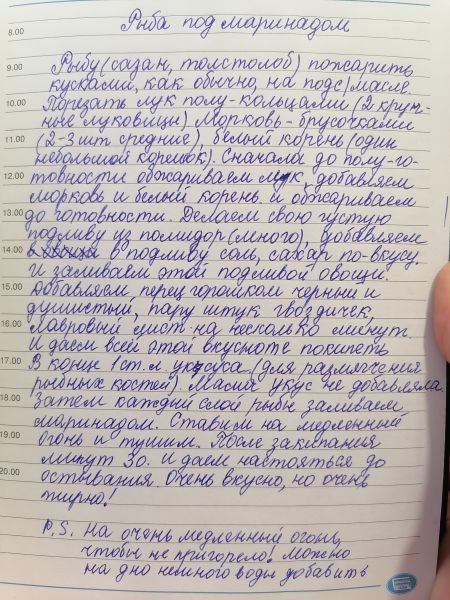 Рыба под маринадом
8.00
9.00 Рыбу (сазан, толстолоб) пожарить
кусками, как обычно, на подс/масле.
10.00 Порезать лук полу-кольцами (2 круп-
ные луковицы) Морковь-брусочками
11.00 (2-3 шт средние), белый корень (один
небольшой корешок). Сначала до полу-го-
12.00 товности обжариваем лук, добавляем
морковь и белый корень и обжариваем
13.00 до готовности. Делаем свою густую
подливу из помидор (много), добавляем
14.00 в подливу соль, сахар по-вкусу.
И заливаем этой подливой овощи.
15.00 Добавляем перец горошком черный и
душистый, пару штук гвоздичек,
16.00 Лавровый лист на несколько минут.
И даем всей этой вкусноте покипеть
17.00 В конце 1 ст. л. уксуса (для размягчения
рыбных костей) Мама укус не добавляла.
18.00 Затем каждый слой рыбы заливаем
маринадом. Ставим на медленный
19.00 огонь и тушим. После закипания
минут 30. и даем настояться до
20.00 остывания. Очень вкусно, но очень
жирно!
P.S. На очень медленный огонь,
чтобы не пригорело! можно
на дно немного воды добавить